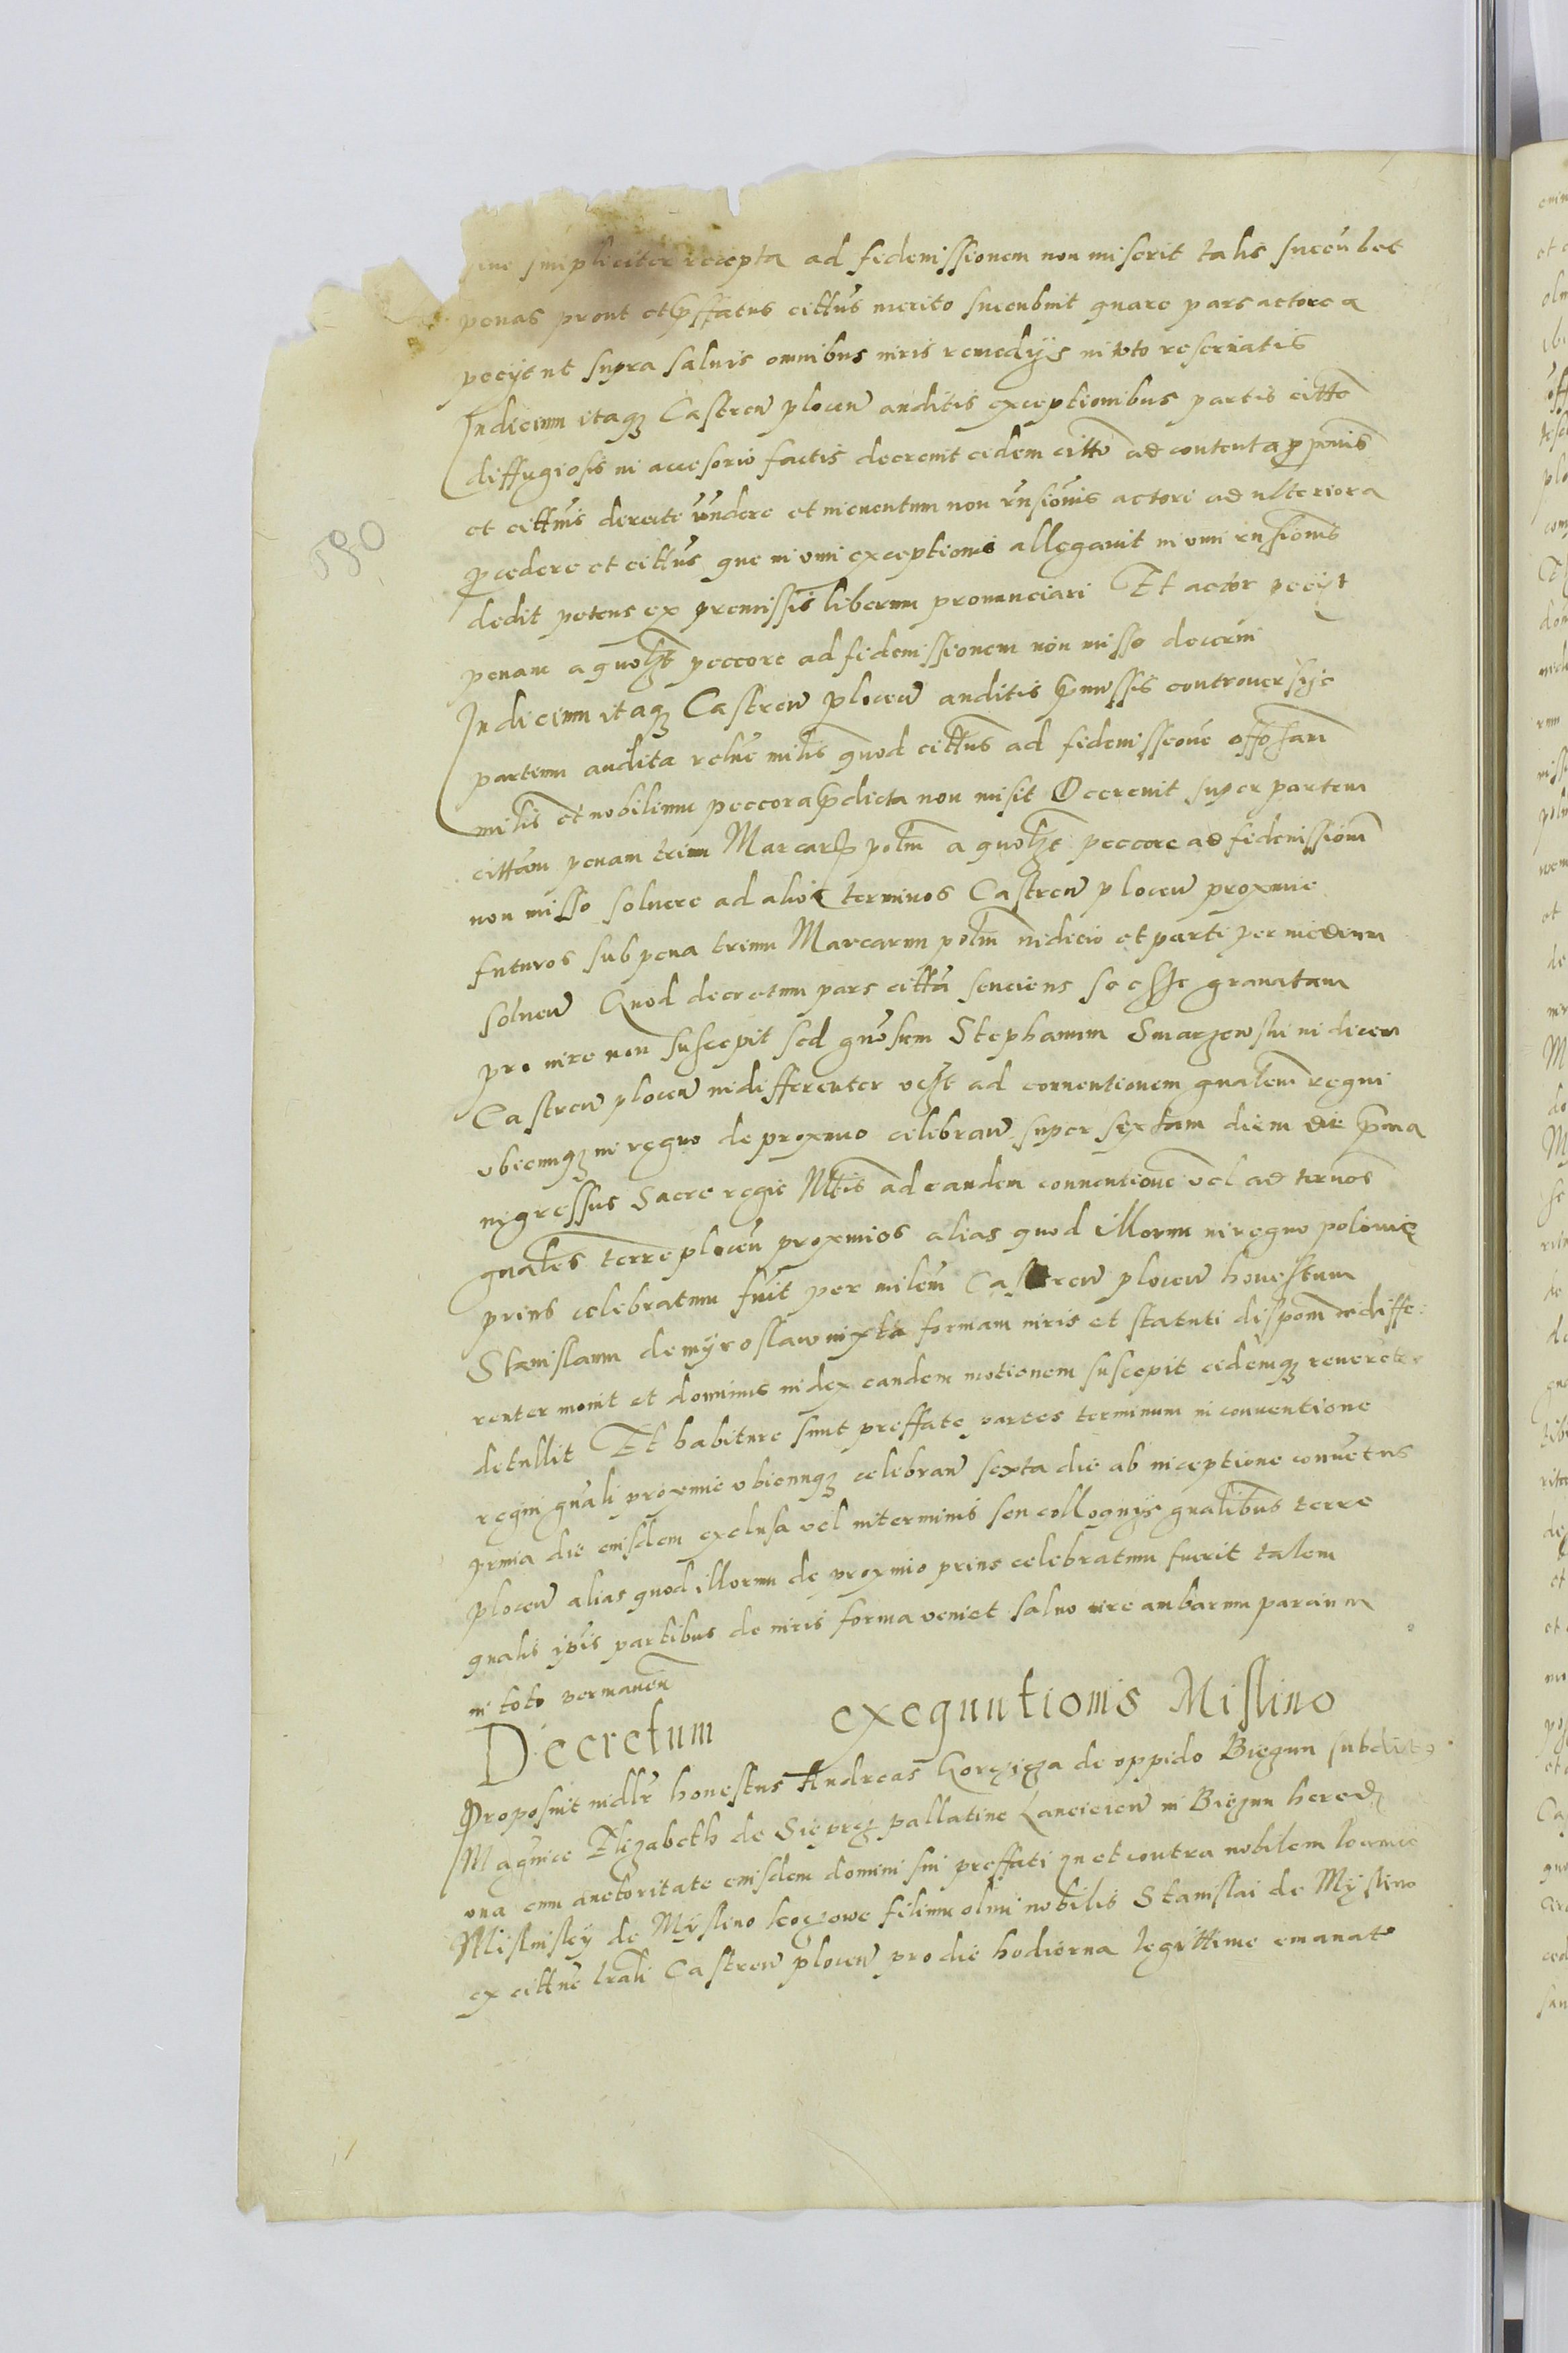 sine simpliciter recepta ad fideiussionem non miserit talis succūbet
penas prout et p̄ffatus cittus merito sucubuit quare pars actorea
peciit ut supra saluis omnibus iuris remedijs in toto reseruatis
Iudicium itaqz Castren̄ plocen̄ auditis exceptionibus partis citte
diffugiosis in accesorio factis decreuit eidem citto ad contenta p̱ponis
et cittnis derecte rn̄dere et in euentum non rn̄sionis actori ad ulteriora
p̱cedere et cittus que in vim exceptionis allegauit in vim rn̄sionis
dedit petens ex premissis liberum pronunciari Et actor peciit
penam a quolzt peccore ad fideiussionem non misso decerni
Iudicium itaqz Castren̄ plocen̄ auditis p̄missis controuersijs
partium audita relne mil̄is quod cittus ad fideiussione offosam
mil̄is et nobilium peccora p̄dicta non misit Decreuit super partem
cittam penam trium Marcarꝝ polm a quolzt peccore ad fideiussionem
non misso soluere ad alios terminos Castren̄ plocen̄ proxime
futuros sub pena trium Marcarum polm iudicio et parti per medium
soluen̄ Quod decretum pars citta senciens se esse grauatam
pro iure non suscepit sed gn̄osum Stephanum Smarzewski iudicem
Castren̄ plocen̄ indifferenter vest ad conuentionem gnalem regni
vbicumqz in regno de proximo celebran̄ super sextam diem die p̄ma
ingressus Sacre regie Mtis ad eandem conuentione vel ad ternos
gnales terre plocen̄ proximios alias quod illorum in regno polonie
prius celebratum fuit per milem Castren̄ plocen̄ honestum
Stanislaum de myroslaw iuxta formam iuris et statuti dispom indiffe
renter mouit et dominus iudex eandem motionem suscepit eidemqz reuereter
detullit Et habiture sunt preffate partes terminum in conuentione
regni gnali proxime vbicunqz celebran̄ sexta die ab inceptione conuetus
prima die eiusdem exclusa vel in terminis seu colloquijs gnalibus terre
plocen̄ alias quod illorum de proximo prius celebratum fuerit talem
qualis ip̄is partibus de iuris forma veniet saluo iure ambarum parcium
in toto permanen̄
Decretum exequutionis Mislino
Proposuit iudlr honestus Andreas Korziza de oppido Biezun subditus
Magnice Elizabeth de Sieprcz pallatine Lancicien̄ in Biezun hered
vna cum auctoritate eiusdem domini sui preffati in et contra nobilem Ioannē
Mislinsky de Myslino koczowe filium olim nobilis Stanislai de Myslino
ex cittne lrali Castren̄ plocen̄ pro die hodierna legittime emanato
580